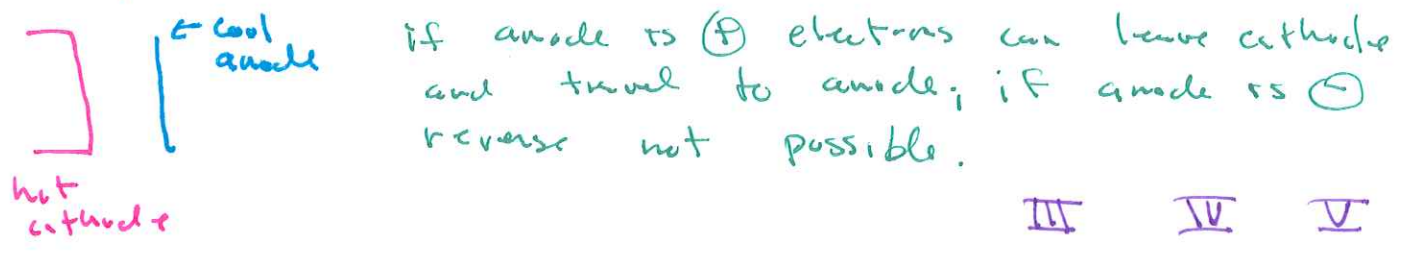 ← cool
anode
if anode is ⊕ electrons can leave cathode
and travel to anode; if anode is ⊖
reverse not possible.
hot
cathode
III IV V